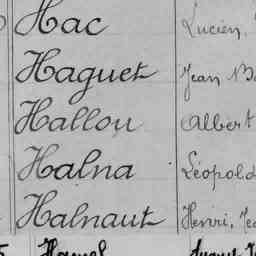 Hac Lucien,
Haguet Jean B
Hallou Albert
Halna Léopold
Halnaut Henri, Je